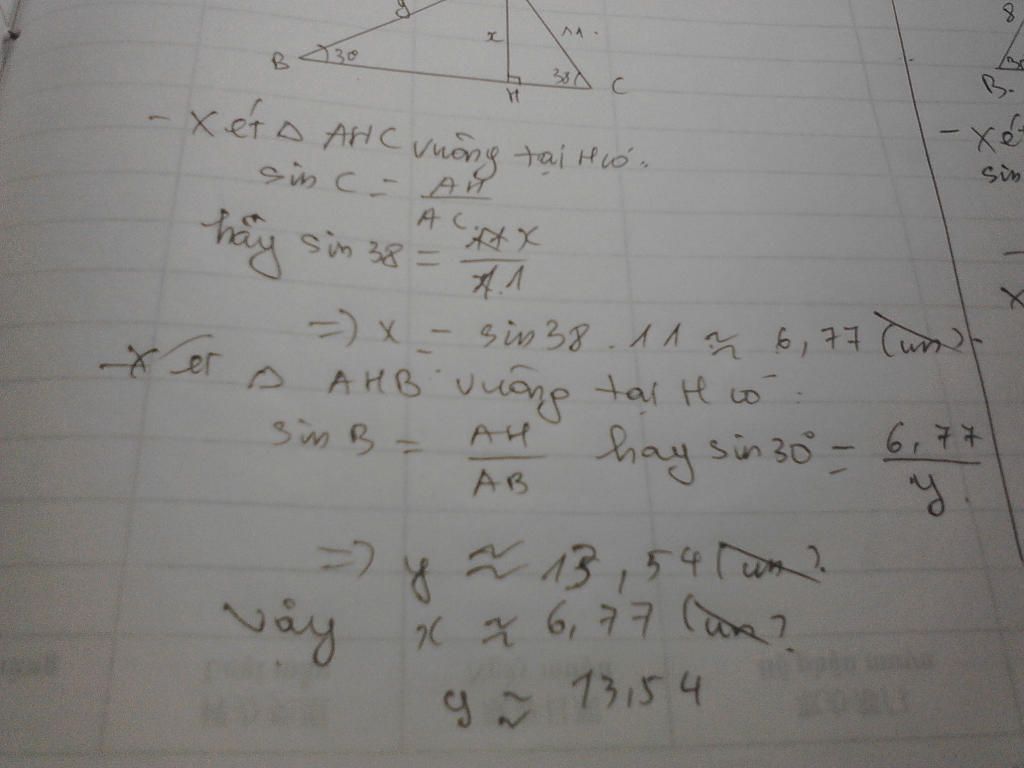 y
x
11.
8
B
30
38
H
C
B.
30
- Xét Δ AHC vuông tại H có:
sin C = AH / AC
hãy sin 38 = x / 11
=> x = sin 38 . 11 ≈ 6,77 (cm).
- Xét Δ AHB vuông tại H có:
sin B = AH / AB hay sin 30° = 6,77 / y
=> y ≈ 13,54 (cm).
Vậy x ≈ 6,77 (cm).
y ≈ 13,54
- Xét
sin
-
x